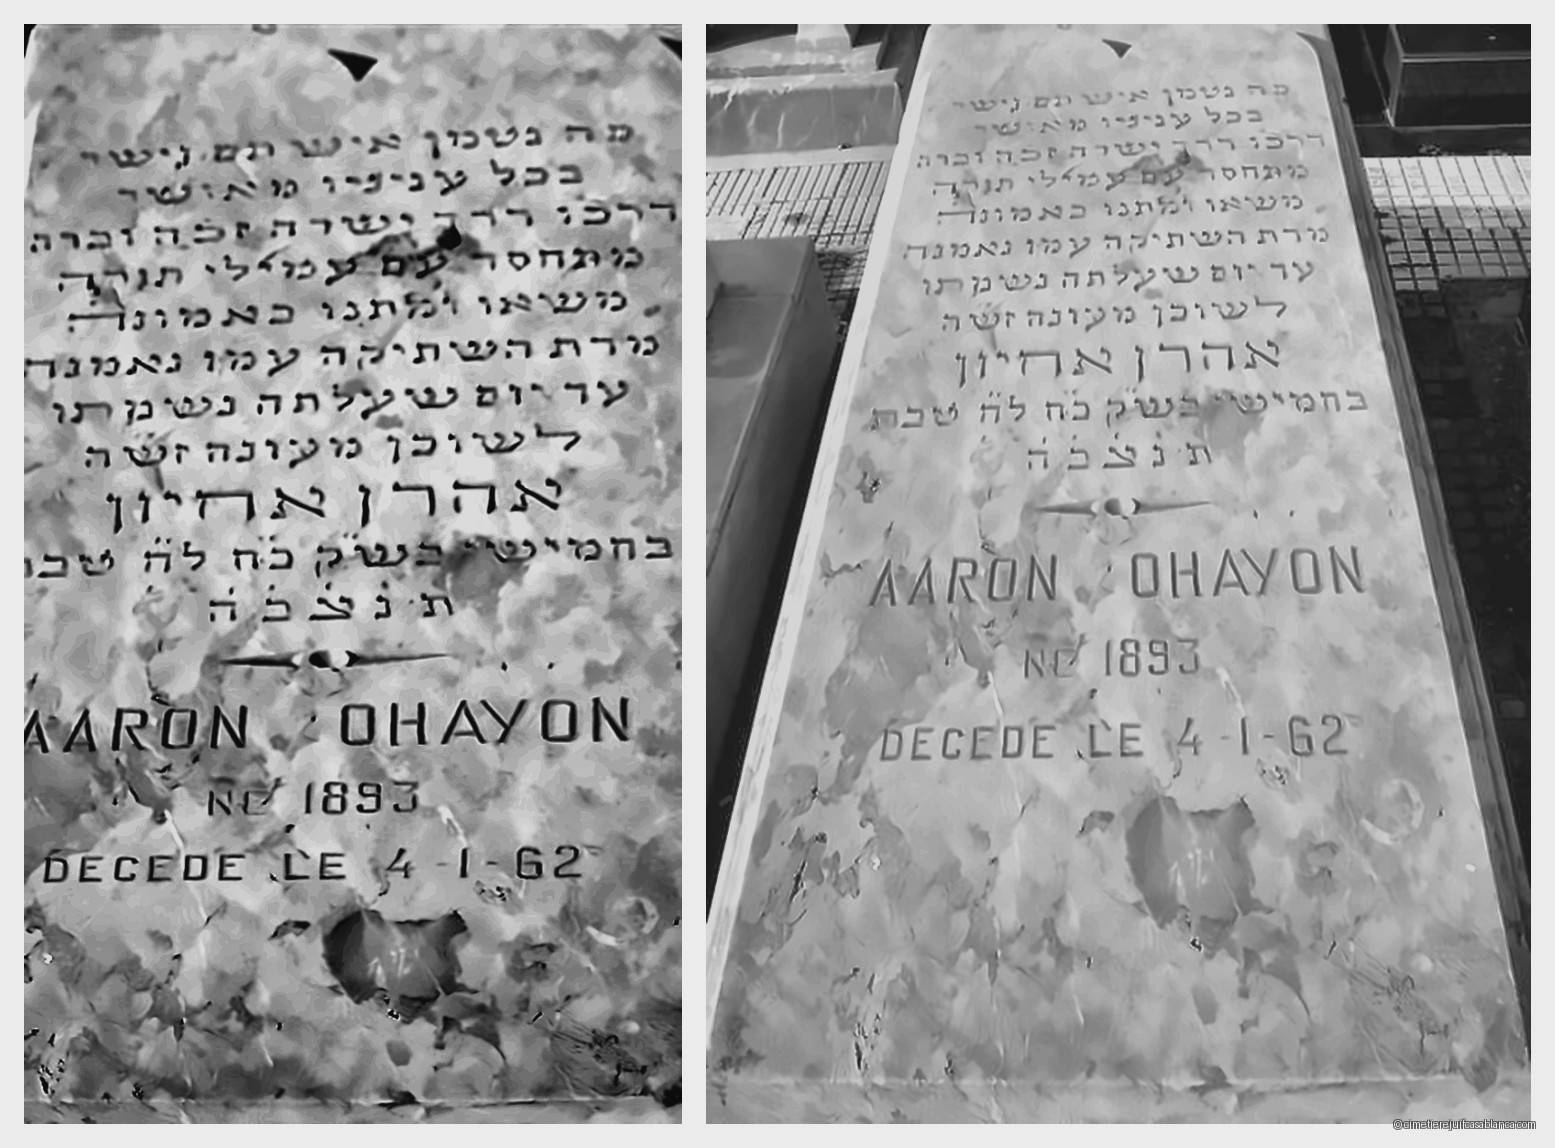 פה נטמן איש תם וישר
בכל עניניו מאושר
דרכו דרך ישרה זכה וברה
מתחסד עם עמילי תורה
משאו ומתנו באמונה
מדת השתיקה עמו נאמנה
עד יום שעלתה נשמתו
לשוכן מעונה זש״ה
אהרן אחיון
בחמישי בש״ק כ״ח לח׳
ת׳ נ׳ צ׳ ב׳ ה׳
AARON OHAYON
NE 1893
DECEDE LE 4-1-62
פה נטמן איש תם וישר
בכל עניניו מאושר
דרכו דרך ישרה זכה וברה
מתחסד עם עמילי תורה
משאו ומתנו באמונה
מדת השתיקה עמו נאמנה
עד יום שעלתה נשמתו
לשוכן מעונה זש״ה
אהרן אחיון
בחמישי בש״ק כ״ח לח׳ טבת
ת׳ נ׳ צ׳ ב׳ ה׳
AARON OHAYON
NE 1893
DECEDE LE 4-1-62
©cimetierejuifcasablanca.com